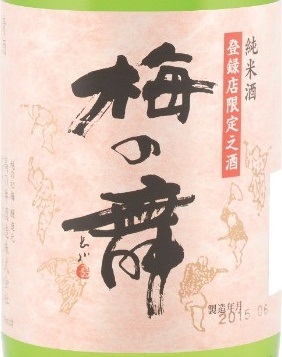 純米酒
登録店限定之酒
梅の舞
製造年月
2015.06